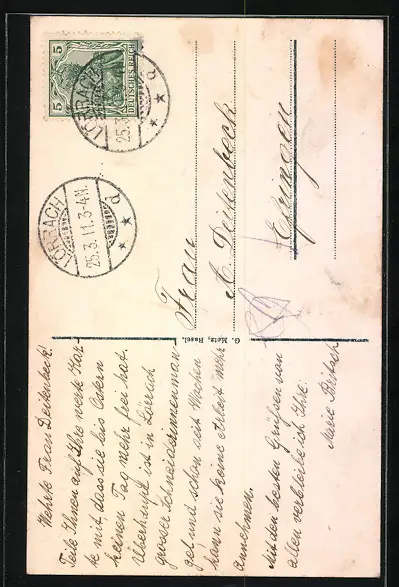 Wehrte Frau Deitenbeck!
Teile Ihnen auf Ihre werte Kar-
te mit, dass sie bis Ostern
keinen Tag mehr frei hat.
Überhaupt ist in Lörrach
grosser Schneiderinnenman-
gel und schon seit Wochen
kann sie keine Arbeit mehr
annehmen.
Mit den besten Grüssen von
allen verbleibe ich Ihre
Marie Britsch
G. Metz, Basel.
5
DEUTSCHES REICH
5
LÖRRACH
25.3.
a
LÖRRACH
25.3.11.3-4N.
a
Frau
A. Deitenbeck
Efringen